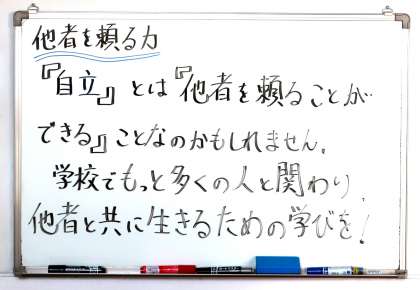 他者を頼る力
『自立』とは『他者を頼ることが
できる』ことなのかもしれません。
学校でもっと多くの人と関わり、
他者と共に生きるための学びを！